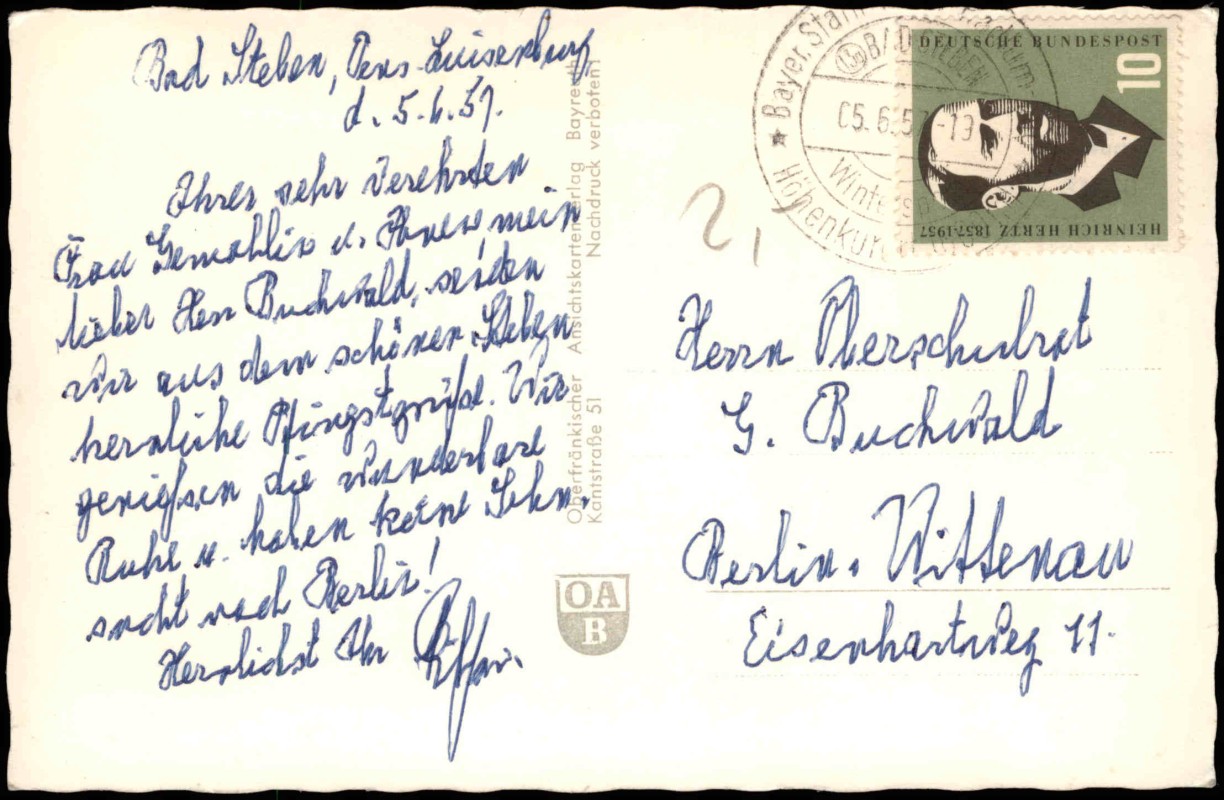 Bad Steben, Pens. Luisenburg
d. 5.6.57.
Ihrer sehr verehrten
Frau Gemahlin u. Ihnen, mein
lieber Herr Buchwald, senden
wir aus dem schönen Steben
herzliche Pfingstgrüße. Wir
genießen die wunderbare
Ruhe u. haben keine Sehn-
sucht nach Berlin!
Herzlichst Ihr
Oberfränkischer Ansichtskartenverlag Bayreuth
Kantstraße 51 Nachdruck verboten
OA
B
Bayer. Staatl.
BAD STEBEN
05.6.57-13
Winter
Höhenkurort
DEUTSCHE BUNDESPOST
10
HEINRICH HERTZ 1857-1957
Herrn Oberschulrat
G. Buchwald
Berlin-Wittenau
Eisenhartweg 11.